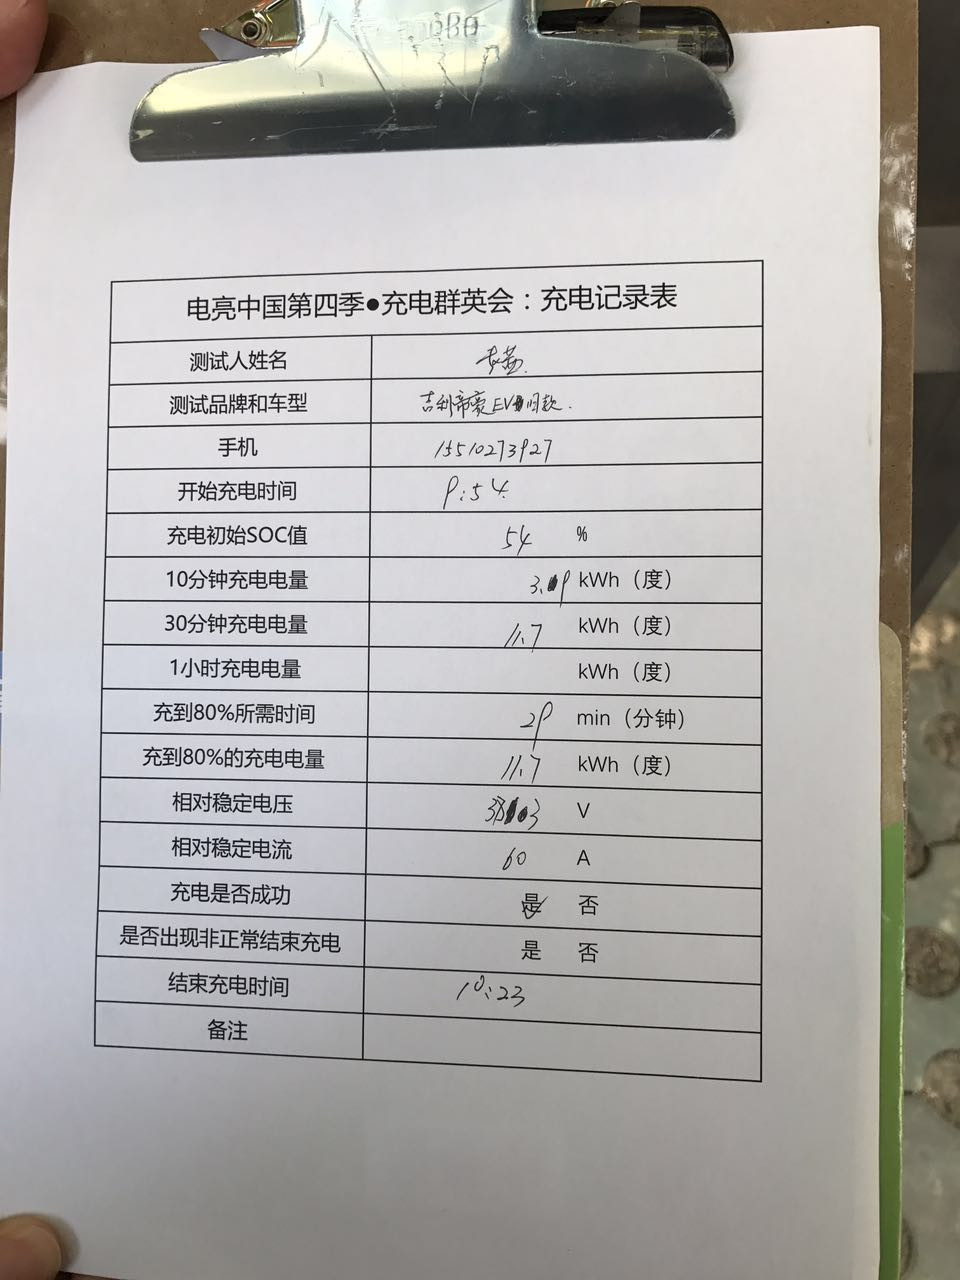 电亮中国第四季●充电群英会：充电记录表
测试人姓名
测试品牌和车型 吉利帝豪EV 款.
手机 15510273927
开始充电时间 9:54.
充电初始SOC值 54 %
10分钟充电电量 3. 9 kWh（度）
30分钟充电电量 11.7 kWh（度）
1小时充电电量 kWh（度）
充到80%所需时间 29 min（分钟）
充到80%的充电电量 11.7 kWh（度）
相对稳定电压 V
相对稳定电流 60 A
充电是否成功 是 否
是否出现非正常结束充电 是 否
结束充电时间 10:23
备注